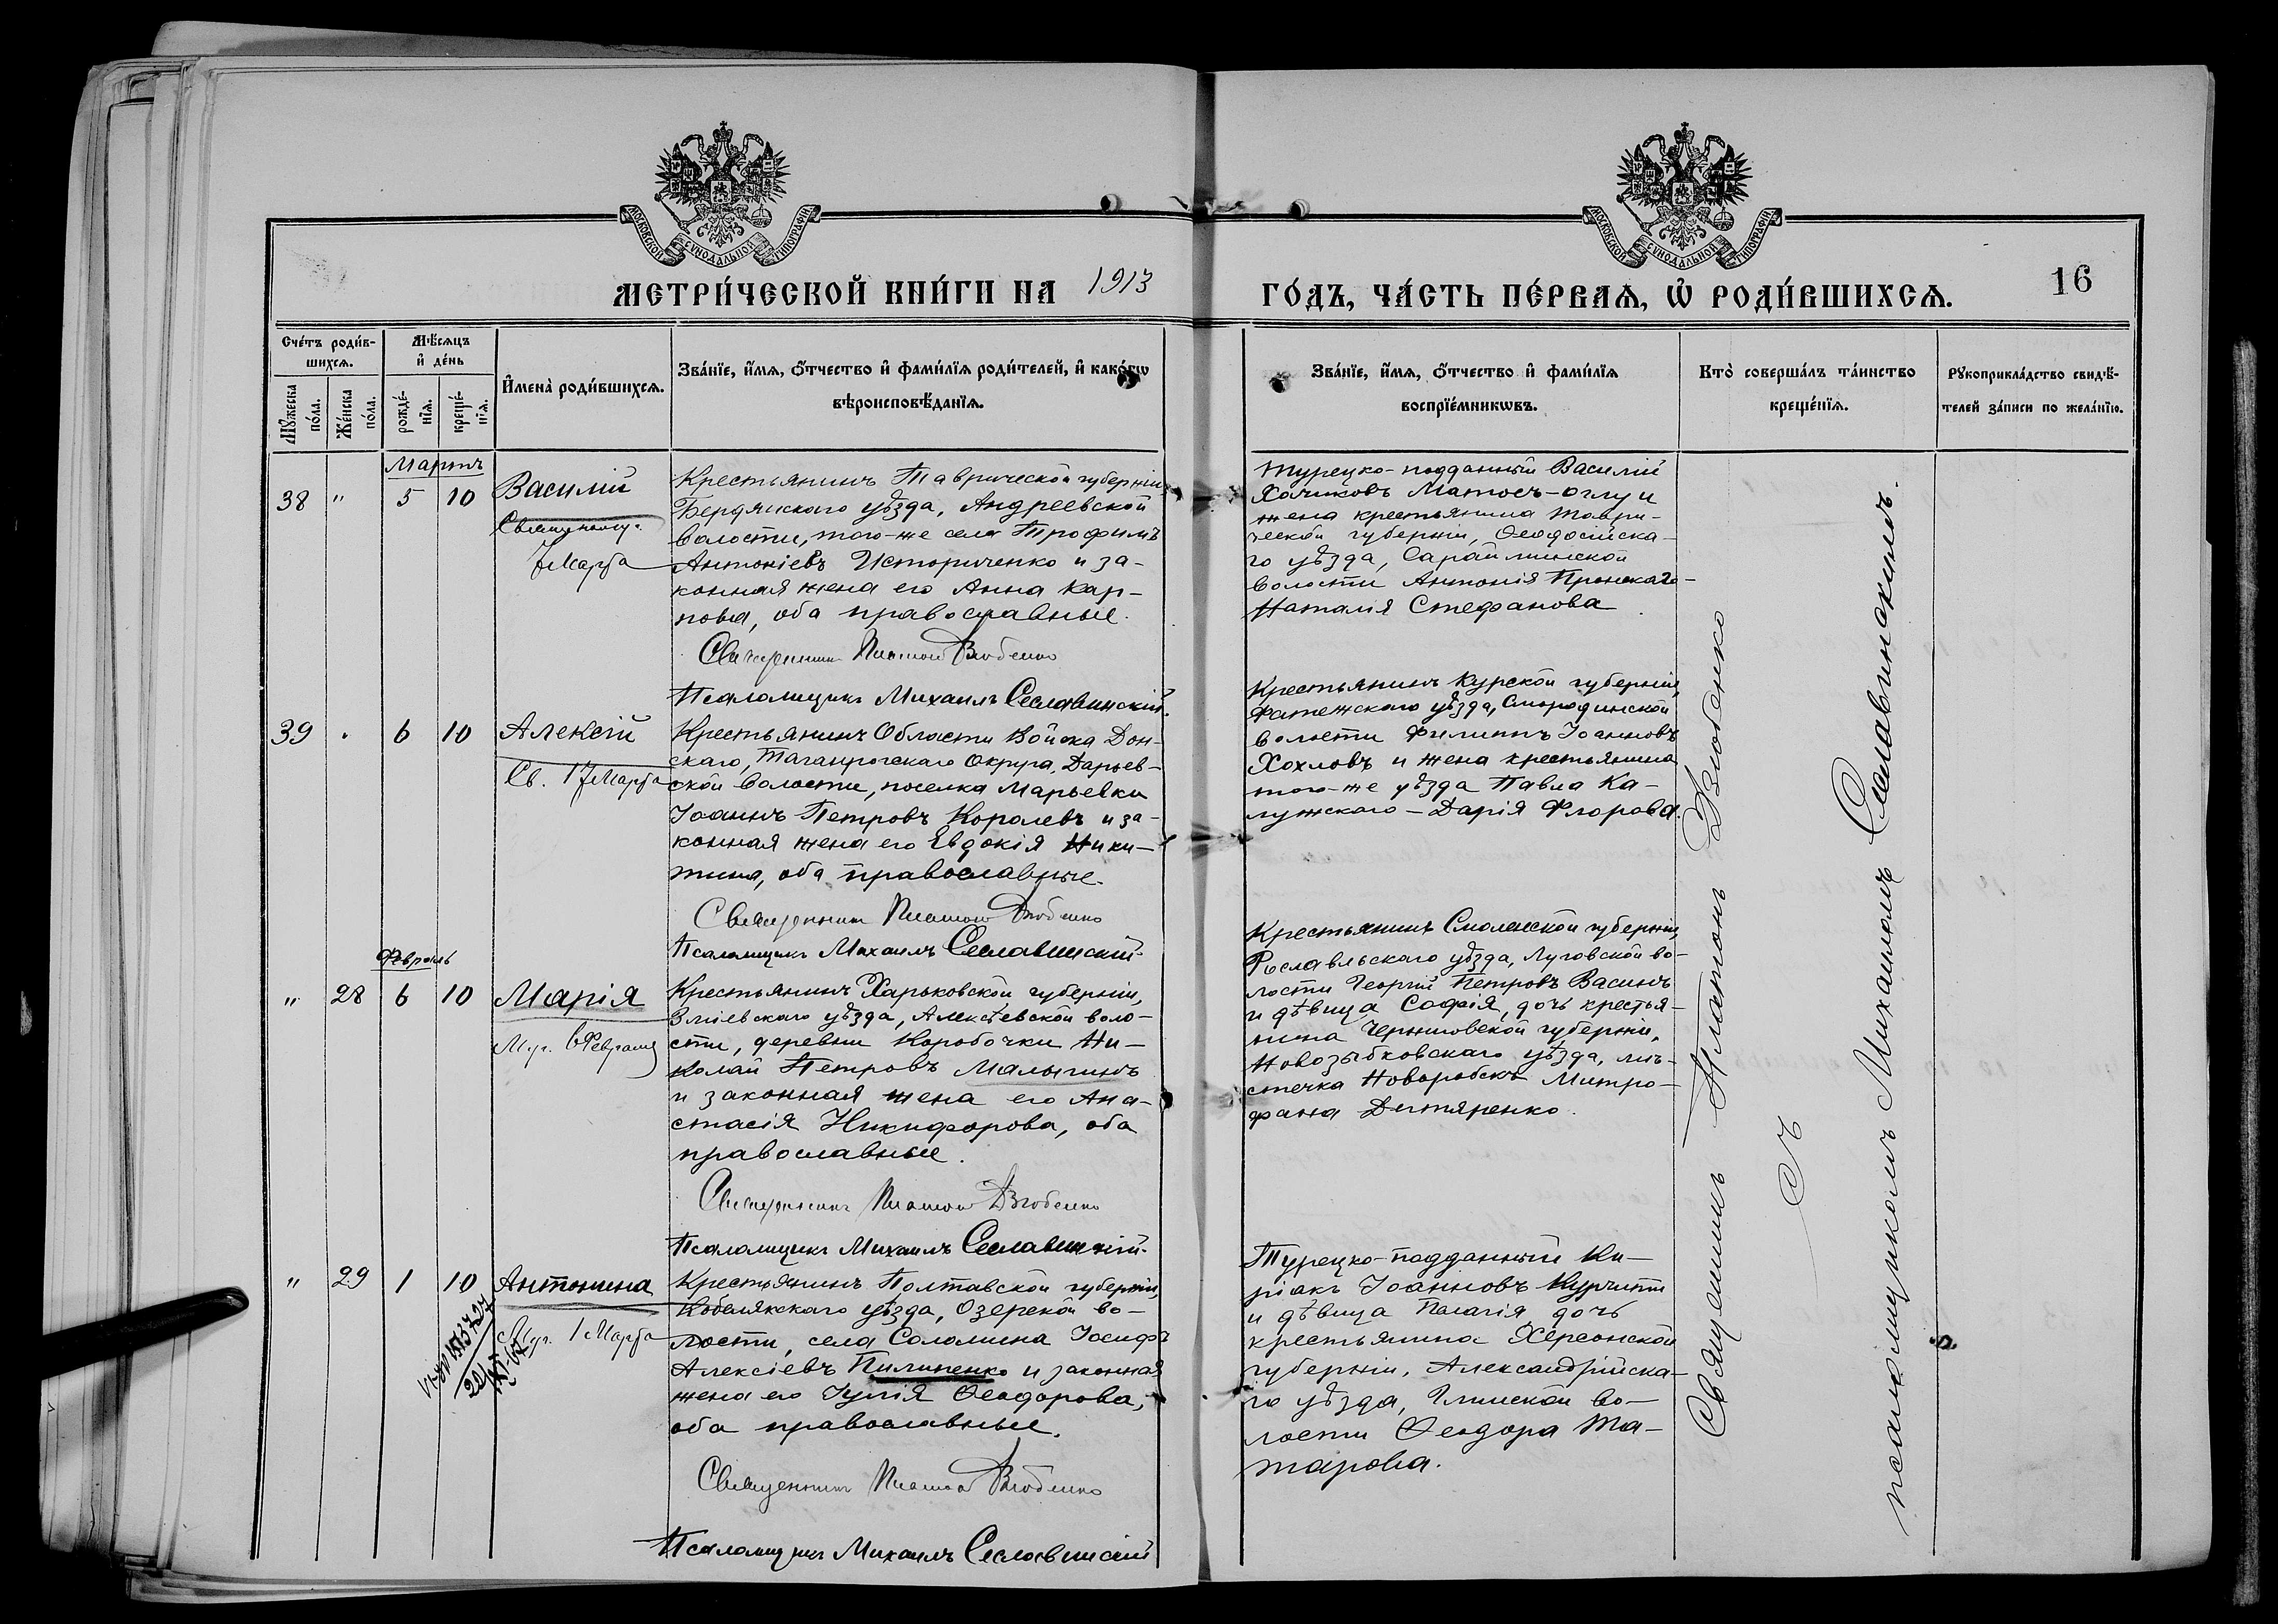 МОСКОВСКОЙ СѴНОДАЛЬНОЙ ТИПОГРАФІИ
МОСКОВСКОЙ СѴНОДАЛЬНОЙ ТИПОГРАФІИ
МЕТРИ́ЧЕСКОЙ КНИ́ГИ НА 1913
ГО́ДЪ, ЧА́СТЬ ПЕ́РВАѦ, Ѡ҆ РОДИ́ВШИХСѦ.
16
Сче́тъ роди́в-
шихсѧ.
Мꙋ́жеска
по́ла.
Же́нска
по́ла.
Мѣ́сѧцъ
и҆ де́нь
рожде́-
нїѧ.
креще́-
нїѧ.
И҆мена̀ роди́вшихсѧ.
Зва́нїе, и҆́мѧ, ѻ҆́тчество и҆ фами́лїѧ роди́телей, и҆ како́гѡ
вѣроисповѣ́данїѧ.
Зва́нїе, и҆́мѧ, ѻ҆́тчество и҆ фами́лїѧ
воспрїе́мникѡвъ.
Кто̀ соверша́лъ та́инство
креще́нїѧ.
Рꙋкоприкла́дство свидѣ́-
телей за́писи по жела́нїю.
Мартъ
38 " 5 10 Василій
7 Марта
Крестьянинъ Таврической губерніи,
Бердянскаго уѣзда, Андреевской
волости, того-же села Трофимъ
Антоніевъ Историченко и за-
конная жена его Анна Кар-
пова, оба православные.
Священникъ Платонъ Вдобенко
Псаломщикъ Михаилъ Сеславинскій.
Турецко-подданный Василій
Хочиковъ Матосъ-оглу и
жена крестьянина Таври-
ческой губерніи, Ѳеодосійска-
го уѣзда, Сарайминской
волости Антонія Пронскаго-
Наталія Стефанова
39 " 6 10 Алексій
Св. 17 Марта
Крестьянинъ Области Войска Дон-
скаго, Таганрогскаго Округа, Дарьев-
ской волости, поселка Марьевки
Іоаннъ Петровъ Королевъ и за-
конная жена его Евдокія Ники-
тина, оба православные.
Священникъ Платонъ Вдобенко
Псаломщикъ Михаилъ Сеславинскій.
Крестьянинъ Курской губерніи,
Фатежскаго уѣзда, Смородинской
волости Филиппъ Іоанновъ
Хохловъ и жена крестьянина
того-же уѣзда Павла Ка-
лужскаго - Дарія Флорова.
Февраль
" 28 6 10 Марія
Муч. 6 Февраля
Крестьянинъ Харьковской губерніи,
Зміевскаго уѣзда, Алексѣевской воло-
сти, деревни Коробочки Ни-
колай Петровъ Малыгинъ
и законная жена его Ана-
стасія Никифорова, оба
православные.
Священникъ Платонъ Вдобенко
Псаломщикъ Михаилъ Сеславинскій.
Крестьянинъ Смоленской губерніи,
Рославльскаго уѣзда, Луговской во-
лости Георгій Петровъ Васинъ
и дѣвица Софія, дочь крестья-
нина Черниговской губерніи,
Новозыбковскаго уѣзда, мѣ-
стечка Новоробска Митро-
фана Дегтяренко.
" 29 1 10 Антонина
Муч. 1 Марта
Крестьянинъ Полтавской губерніи,
Кобелякскаго уѣзда, Озерской во-
лости, села Соломина Іосифъ
Алексіевъ Пилипенко и законная
жена его Іулія Ѳеодорова,
оба православные.
Священникъ Платонъ Вдобенко
Псаломщикъ Михаилъ Сеславинскій
Турецко-подданный Ки-
ріакъ Іоанновъ Курчити
и дѣвица Пелагія дочь
крестьянина Херсонской
губерніи, Александрійска-
го уѣзда, Глинской во-
лости Ѳеодора Та-
тарова.
Священникъ Платонъ Вдобенко
съ
псаломщикомъ Михаиломъ Сеславинскимъ.